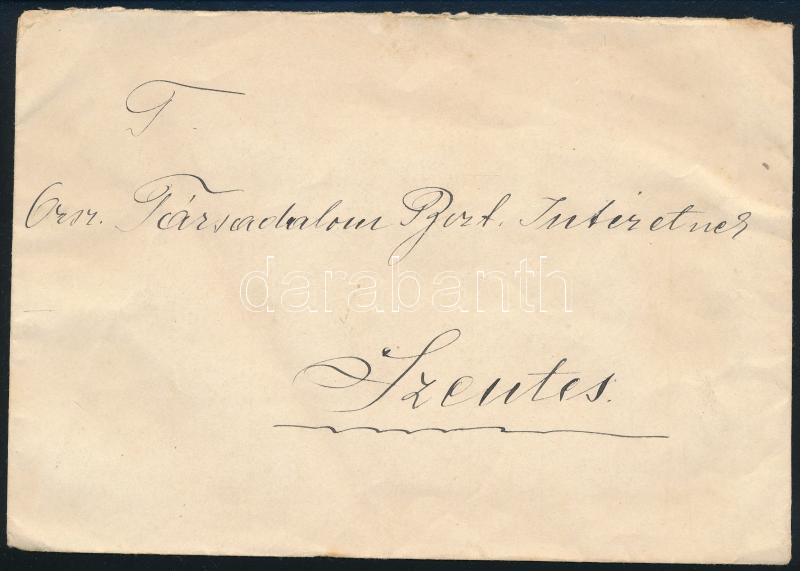 T.
Orsz. Társadalom Bizt. Intézetnek
darabanth
Szentes.